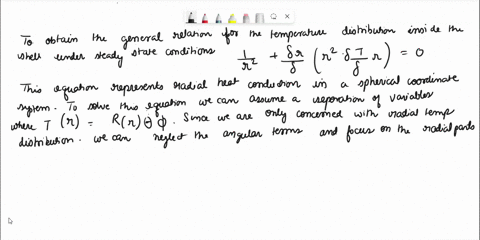 To obtain the general relation for the temperature distribution inside the
shell under steady state conditions 1/r² + δr/δ (r² · δT/δ r) = 0
This equation represents radial heat conduction in a spherical coordinate
system. To solve this equation we can assume a separation of variables
where T (r) = R(r) Θ ϕ. Since we are only concerned with radial temp
distribution. we can neglect the angular terms and focus on the radial parts